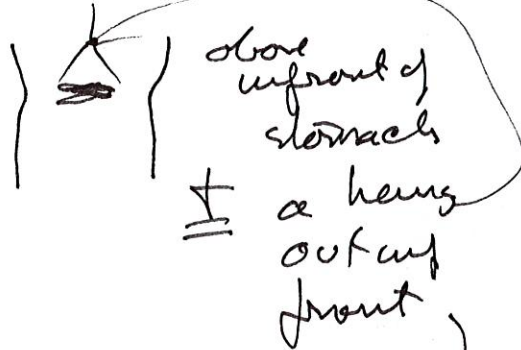 above
infront of
stomach
I a being
out in
front